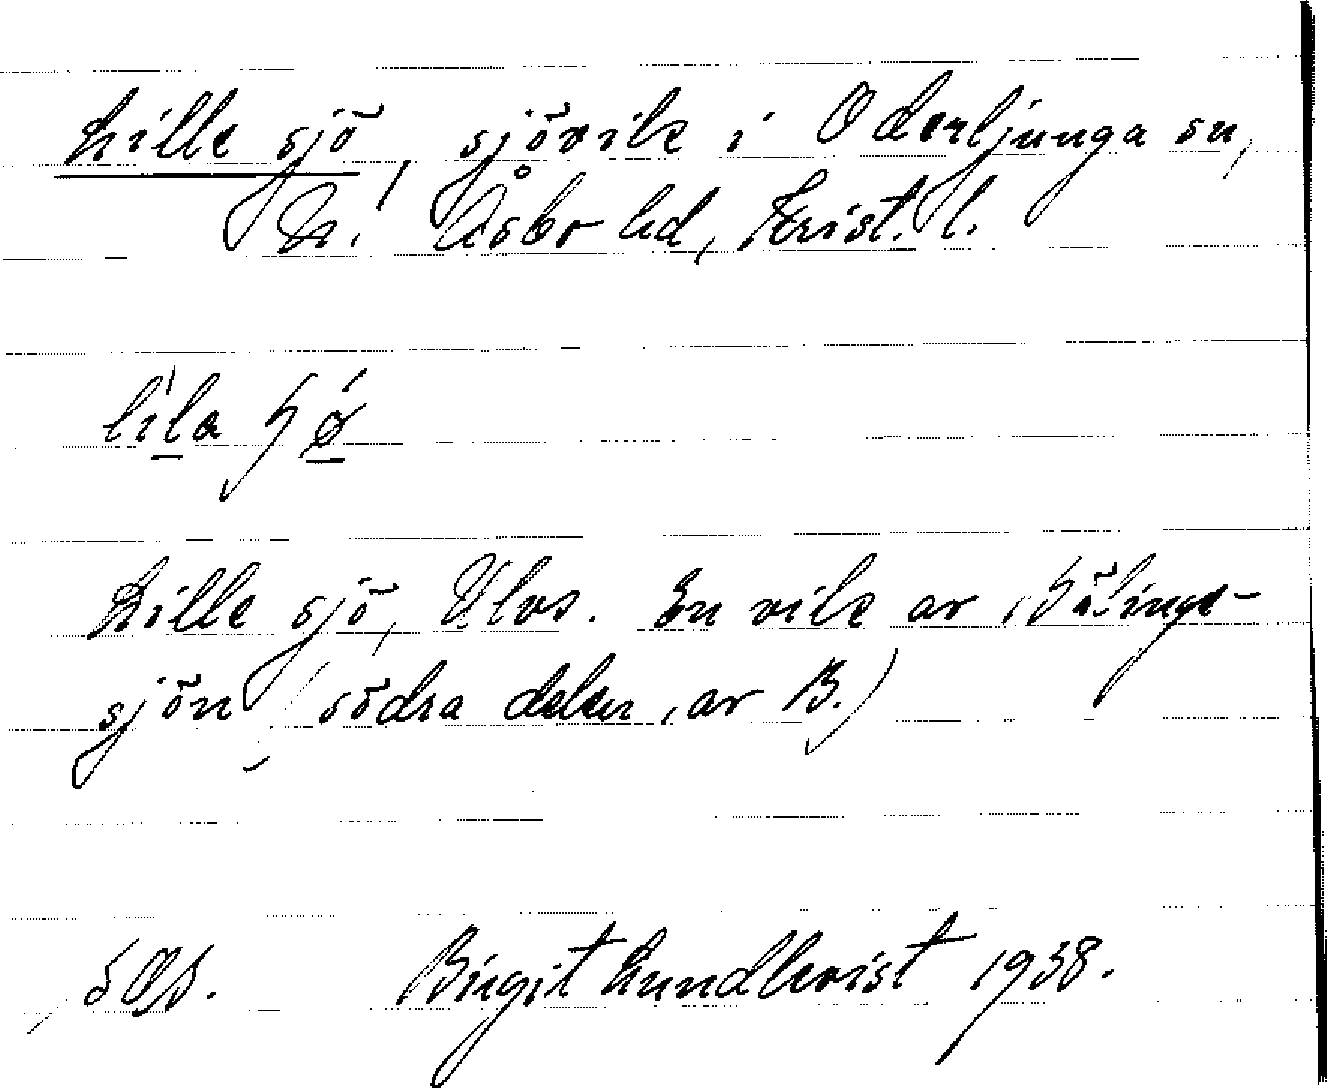 Lille sjö, sjövik i Oderljunga sn,
N. Åsbo hd, Krist. l.
lila ɧø
Lille sjö, Ulvs. En vik av Bälinge-
sjön (södra delen av B.)
SOA. Birgit Lundkvist 1938.